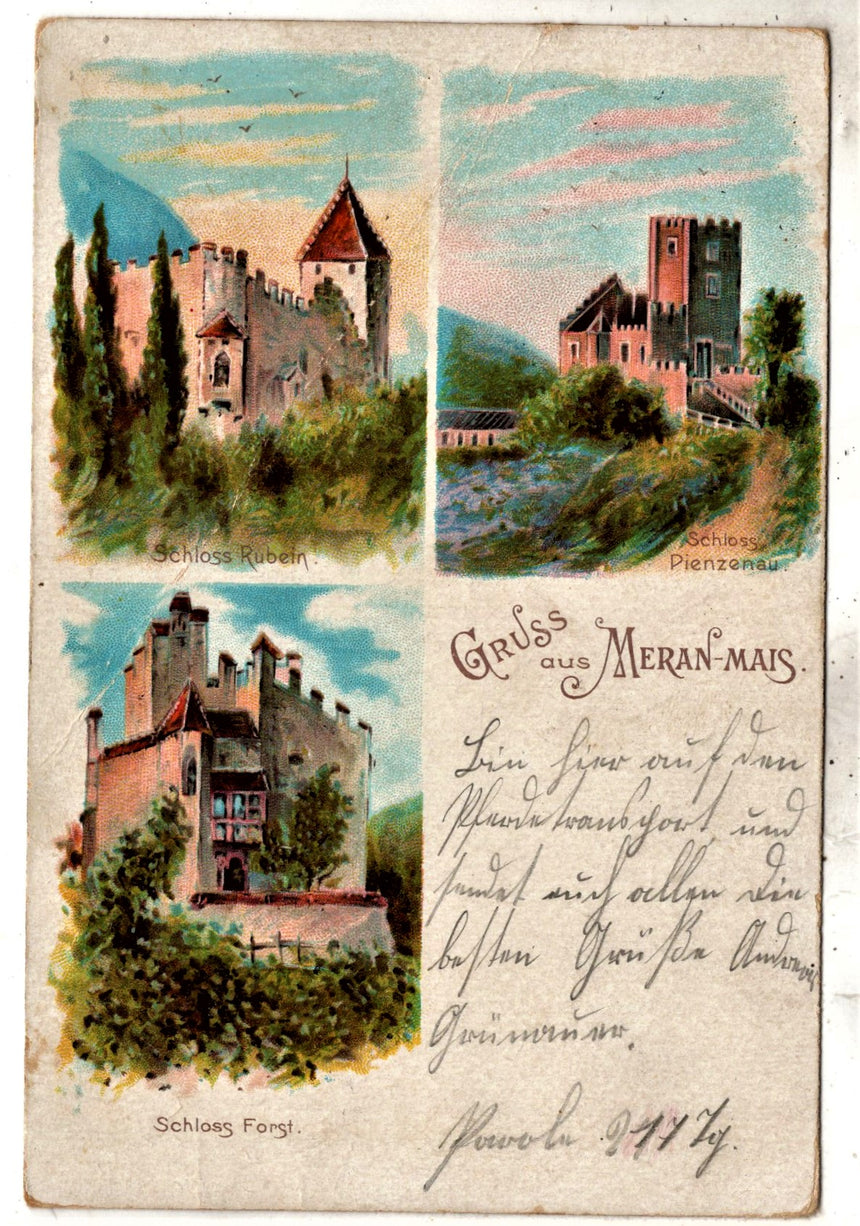 Schloss Rubein.
Schloss
Pienzenau.
Gruss
aus Meran-Mais.
Bin hier auf den
Pferdetransport und
sendet euch allen die
besten Grüße Andreas
Grünauer.
Schloss Forst.
Parole 217 Tg.